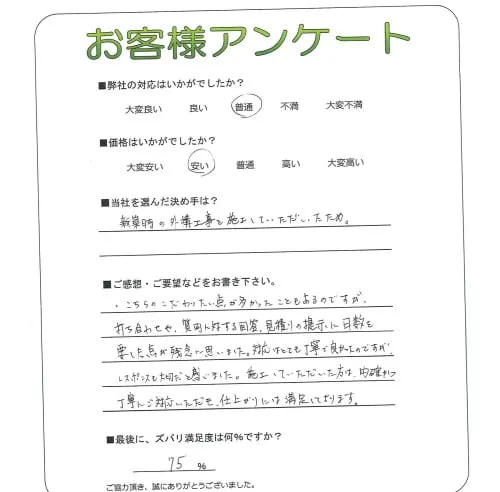 お客様アンケート
■弊社の対応はいかがでしたか？
大変良い 良い 普通 不満 大変不満
■価格はいかがでしたか？
大変安い 安い 普通 高い 大変高い
■当社を選んだ決め手は？
新築時の外構工事を施工していただいたため。
■ご感想・ご要望などをお書き下さい。
・こちらのこだわりたい点が多かったこともあるのですが、
打ち合わせや、質問に対する回答、見積りの提示に日数を
要した点が残念に思いました。対応はとても丁寧で良かったのですが
レスポンスも大切だと感じました。施工していただいた方は、的確かつ
丁寧にご対応いただき、仕上がりには満足しております。
■最後に、ズバリ満足度は何%ですか？
75 %
ご協力頂き、誠にありがとうございました。